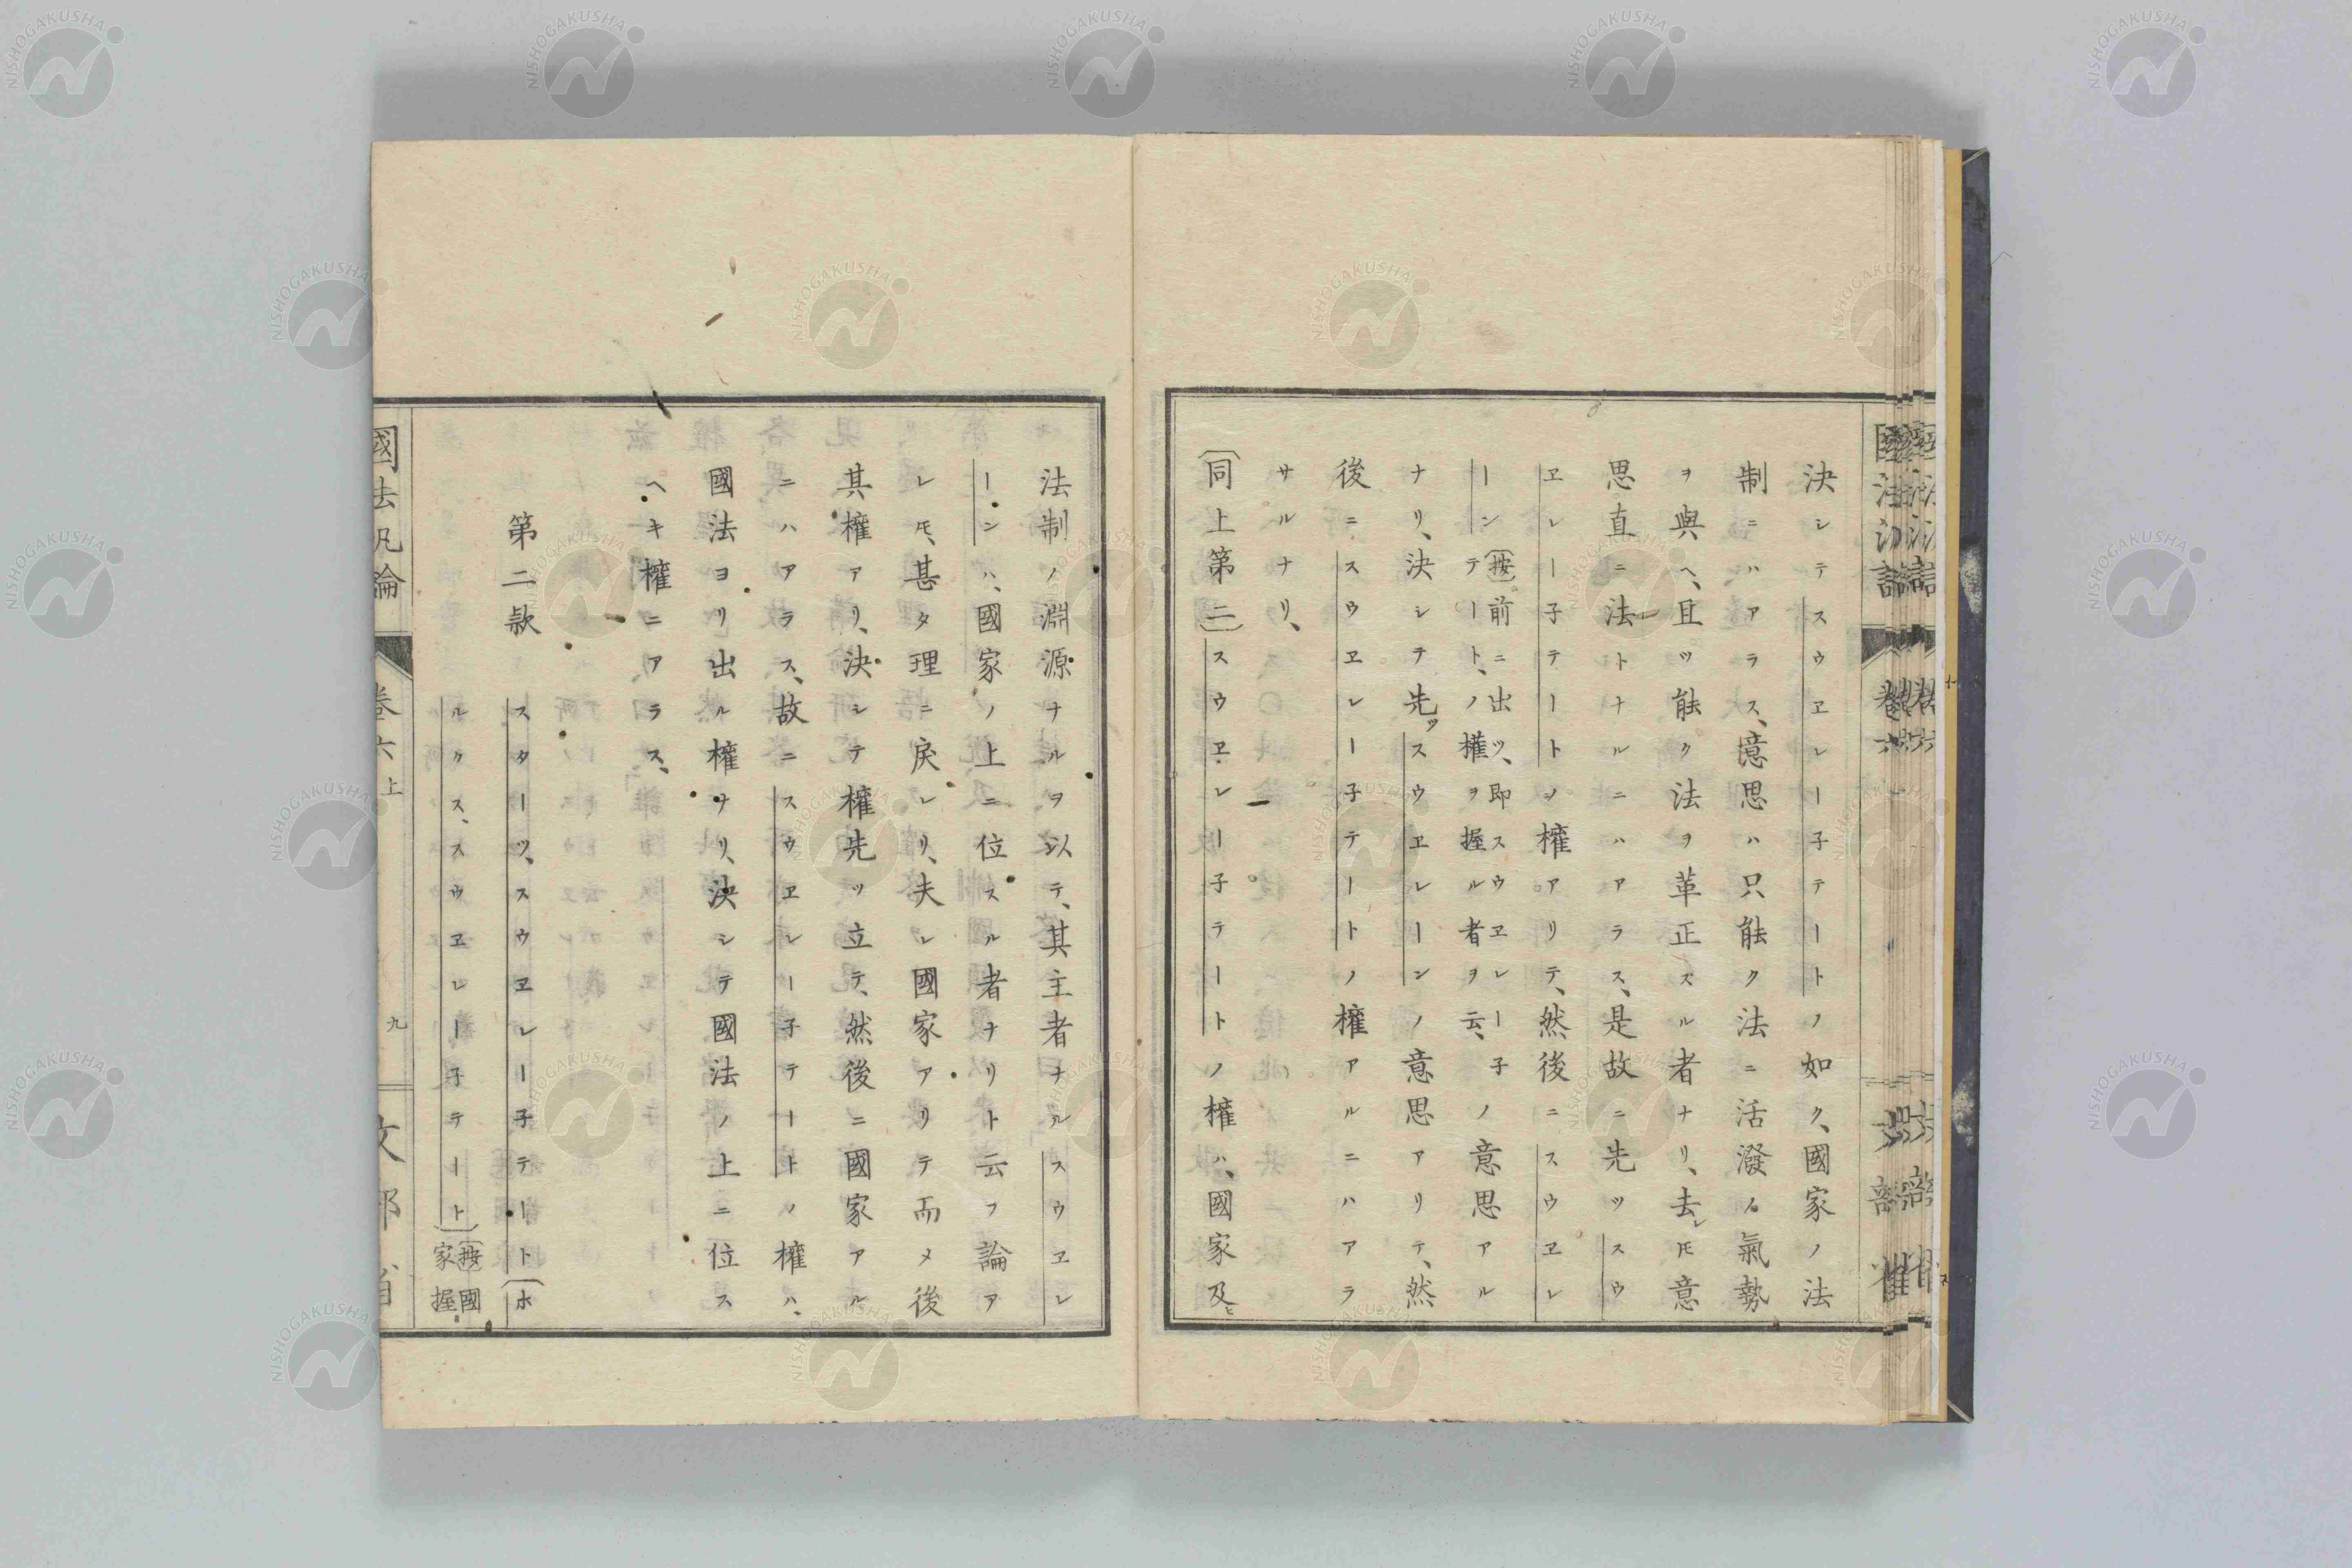 決シテスウヱレー子テートノ如ク、國家ノ法
制ニハアラス、意思ハ只能ク法ニ活潑ノ氣勢
ヲ與ヘ、且ツ能ク法ヲ革正スル者ナリ、去レ𪜈意
思直ニ法トナルニハアラス、是故ニ先ツスウ
ヱレー子テートノ權アリテ、然後ニスウヱレ
ーン(按前ニ出ツ、即スウヱレー子
テート、ノ權ヲ握ル者ヲ云、ノ意思アル
ナリ、決シテ先ツスウヱレーンノ意思アリテ、然
後ニスウヱレー子テートノ權アルニハアラ
サルナリ、
(同上第二)スウヱレー子テートノ權ハ、國家及ヒ
法制ノ淵源ナルヲ以テ、其主者ナルスウヱレ
ーンハ、國家ノ上ニ位スル者ナリト云フ論ア
レ𪜈、甚タ理ニ戾レリ、夫レ國家アリテ而メ後
其權アリ、決シテ權先ツ立テ、然後ニ國家アル
ニハアラス、故ニスウヱレー子テートノ權ハ、
國法ヨリ出ル權ナリ、決シテ國法ノ上ニ位ス
ヘキ權ニアラス、
第二款
スターツ、スウヱレー子テート(ホ
ルクス、スウヱレー子テート)(按國
家握
國法汎論
卷六上
九
文部省
NISHOGAKUSHA